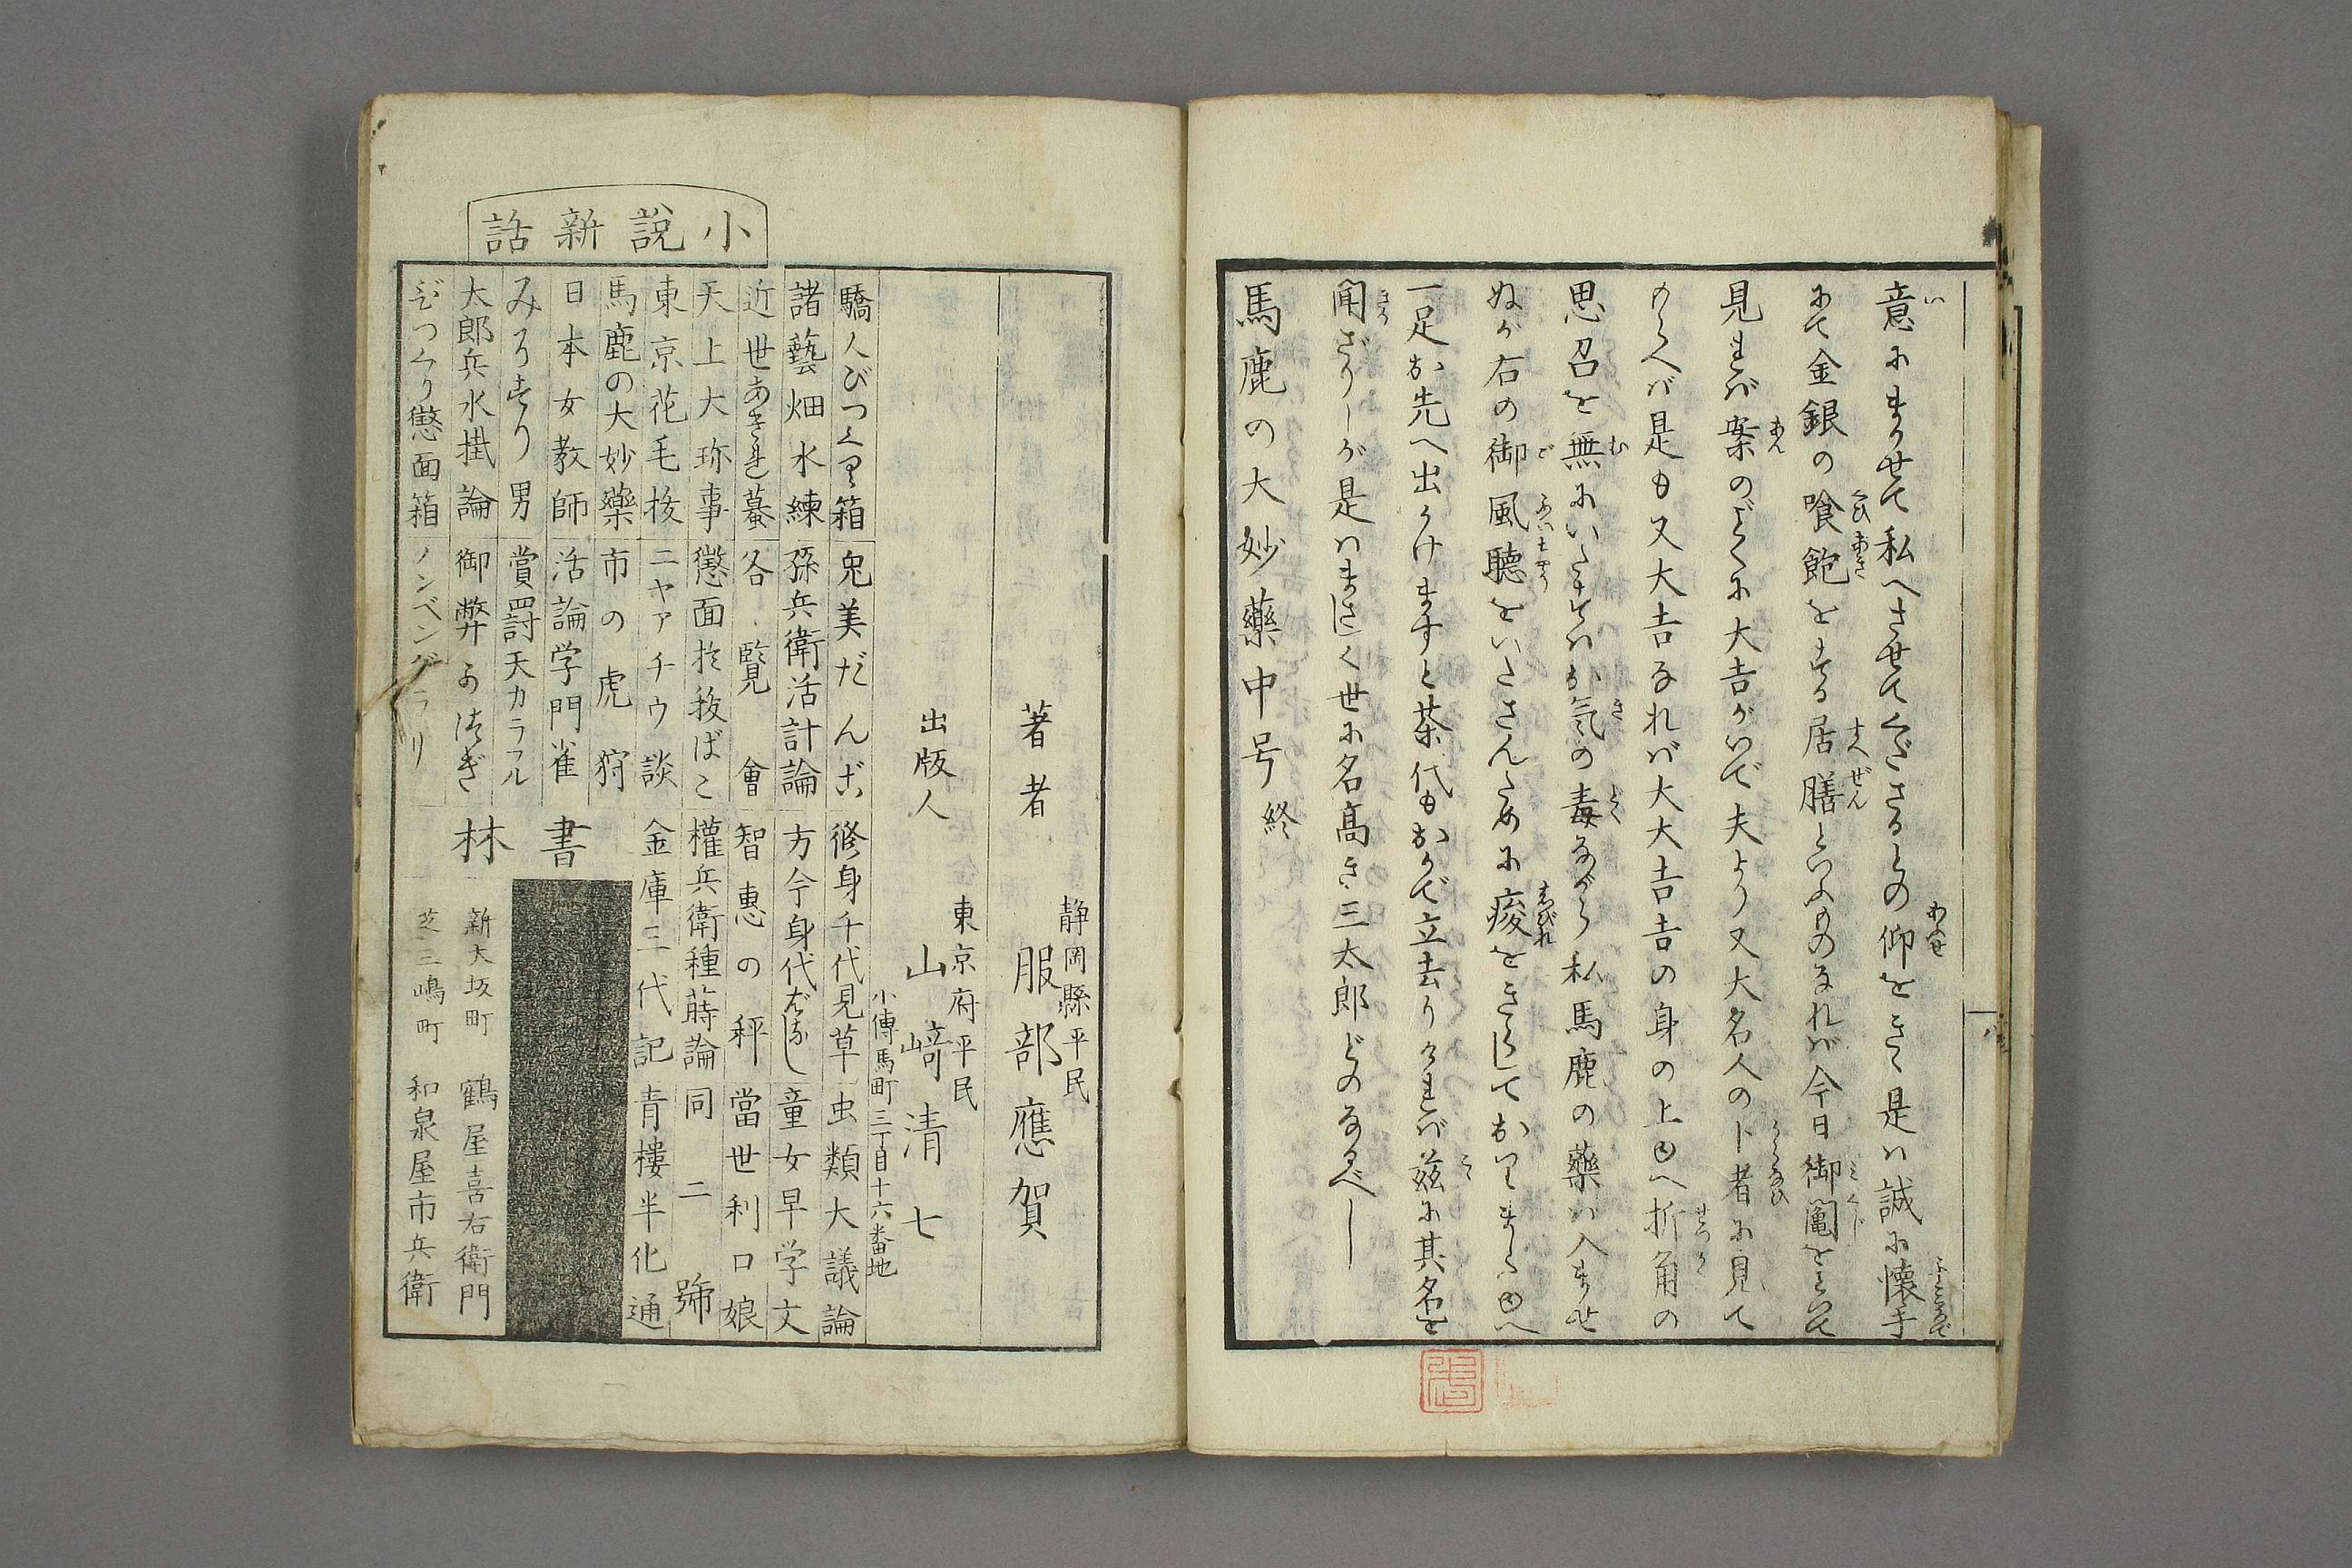 意にまかせて私へさせてくださるとの仰をきゝ是ハ誠に懐手
にて金銀の喰飽をする居膳といふものなれバ今日御鬮をとつて
見れバ案のごとくに大吉がいで夫より又大名人の卜者に見て
もらへバ是も又大吉なれバ大大吉吉の身の上ゆへ折角の
思召を無にいたすもお気の毒ながら私馬鹿の薬ハ入ませ
ぬが右の御風聴をいたさんために痿をきらしておりましたゆへ
一足お先へ出かけますと茶代もおかで立去りけれバ茲に其名を
聞ざりしが是ハまさしく世に名高き三太郎どのなるべし
馬鹿の大妙藥中号終
著者
静岡縣平民
服部應賀
出版人
東京府平民
山﨑清七
小傳馬町三丁目十六番地
小說新話
驕人びつくり箱
諸藝畑水練
近世あきれ蟇
天上大珎事
東京花毛抜
馬鹿の大妙藥
日本女教師
みゝずり男
太郎兵水掛論
びつくり懲面箱
兎美だんご
孫兵衛活計論
各覧會
懲面於抜ばこ
ニヤアチウ談
市の虎狩
活論学門雀
賞罸天カラフル
御弊のはぎ
ノンベングラリ
修身千代見草
方今身代ばなし
智惠の秤
權兵衛種蒔論
金庫三代記
虫類大議論
童女早学文
當世利口娘
同二號
青樓半化通
書林
新大坂町 鶴屋喜右衛門
芝三嶋町 和泉屋市兵衛